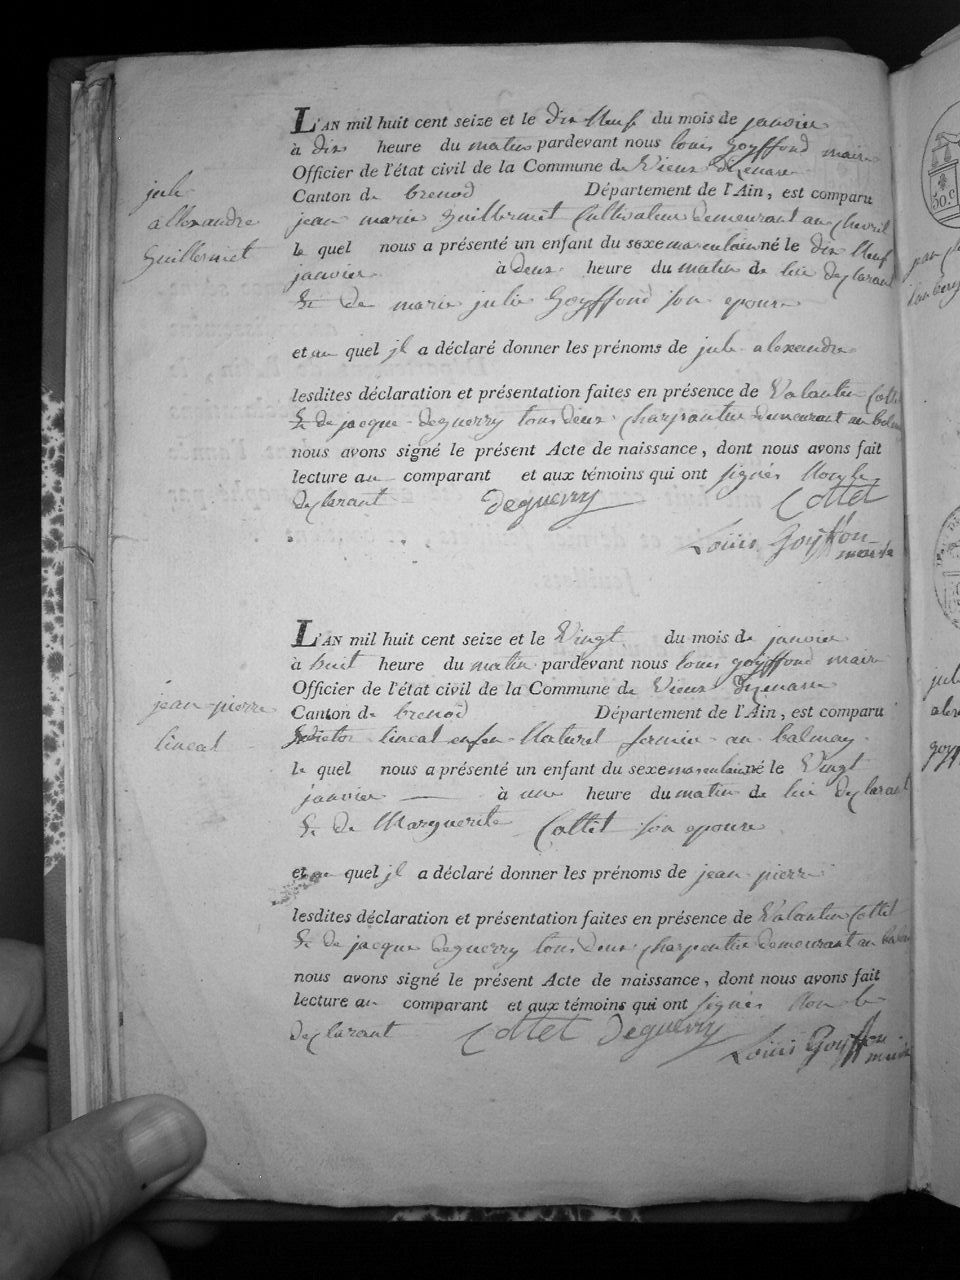 L'AN mil huit cent seize et le dix Neuf du mois de janvier
à dix heure du matin pardevant nous louis goyffond maire
Officier de l'état civil de la Commune de Vieux dizenave
jule
allexandre
Guillermet
Canton de brenod Département de l'Ain, est comparu
jean marie guillermet Cultivateur demeurant au
le quel nous a présenté un enfant du sexe masculain né le dix Neuf
janvier à deux heure du matin de lui declarant
& de marie julie Goyffond son epouse
et au quel jl a déclaré donner les prénoms de jule alexandre
lesdites déclaration et présentation faites en présence de Valantin Cottet
& de jacque deguerry tous deux charpantier demeurant au balmay
nous avons signé le présent Acte de naissance, dont nous avons fait
lecture au comparant et aux témoins qui ont signés Non le
declarant deguerry Cottet
Louis Goyffon
maire
L'AN mil huit cent seize et le Vingt du mois de janvier
à huit heure du matin pardevant nous louis goyffond maire
Officier de l'état civil de la Commune de Vieux dizenave
jean pierre
lineal
Canton de brenod Département de l'Ain, est comparu
Victor lineal enfen Naturel fermier au balmay
le quel nous a présenté un enfant du sexe masculain né le Vingt
janvier à une heure du matin de lui declarant
& de Marguerite Cottet son epouse
et au quel jl a déclaré donner les prénoms de jean pierre
lesdites déclaration et présentation faites en présence de Valantin Cottet
& de jacque deguerry tous deux charpentier demeurant au balmay
nous avons signé le présent Acte de naissance, dont nous avons fait
lecture au comparant et aux témoins qui ont signés Non le
declarant Cottet Deguerry
Louis Goyffon
maire